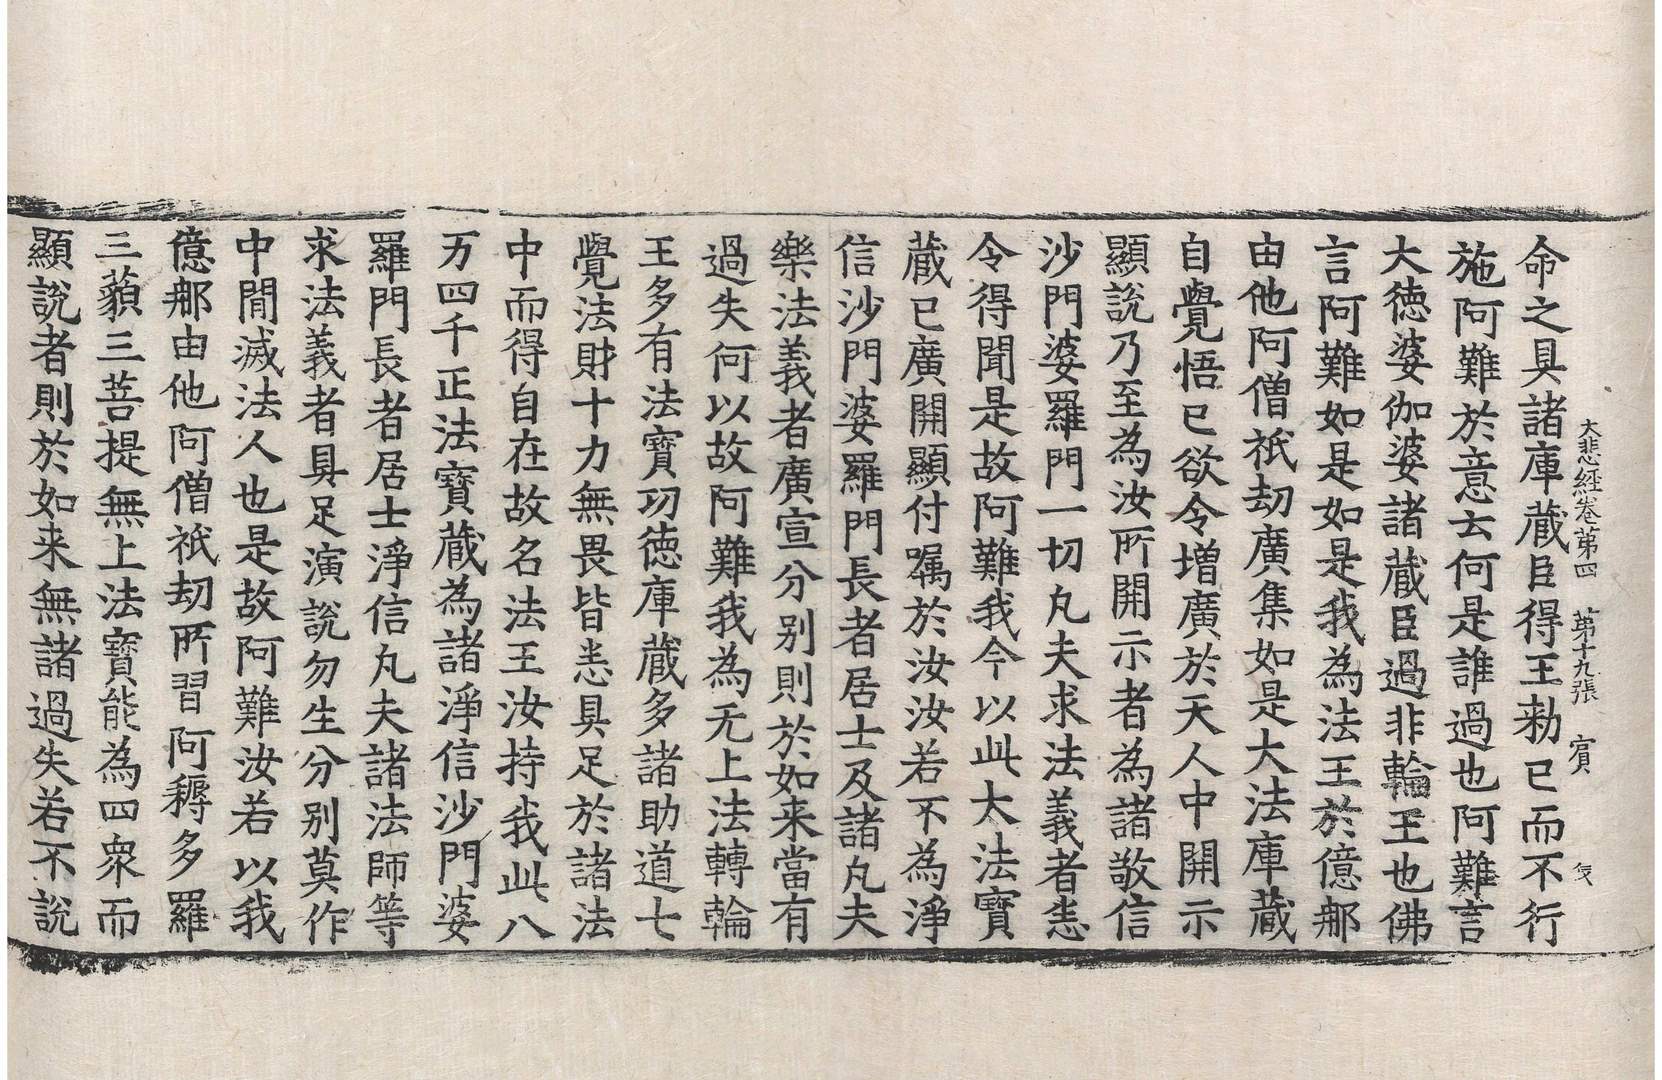 大悲經卷第四　第十九張　賔
命之具諸庫蔵臣得王勑已而不行
施阿難於意云何是誰過也阿難言
大徳婆伽婆諸蔵臣過非輪王也佛
言阿難如是如是我為法王於億那
由他阿僧祇劫廣集如是大法庫蔵
自覺悟已欲令增廣於天人中開示
顯說乃至為汝所開示者為諸敬信
沙門婆羅門一切凡夫求法義者恙
令得聞是故阿難我今以此大法寶
蔵已廣開顯付囑於汝汝若不為淨
信沙門婆羅門長者居士及諸凡夫
樂法義者廣宣分別則於如来當有
過失何以故阿難我為无上法轉輪
王多有法寶功徳庫蔵多諸助道七
覺法財十力無畏皆恙具足於諸法
中而得自在故名法王汝持我此八
万四千正法寶蔵為諸淨信沙門婆
羅門長者居士淨信凡夫諸法師等
求法義者具足演說勿生分別莫作
中間滅法人也是故阿難汝若以我
億那由他阿僧祇劫所習阿耨多羅
三藐三菩提無上法寶能為四衆而
顯說者則於如来無諸過失若不說